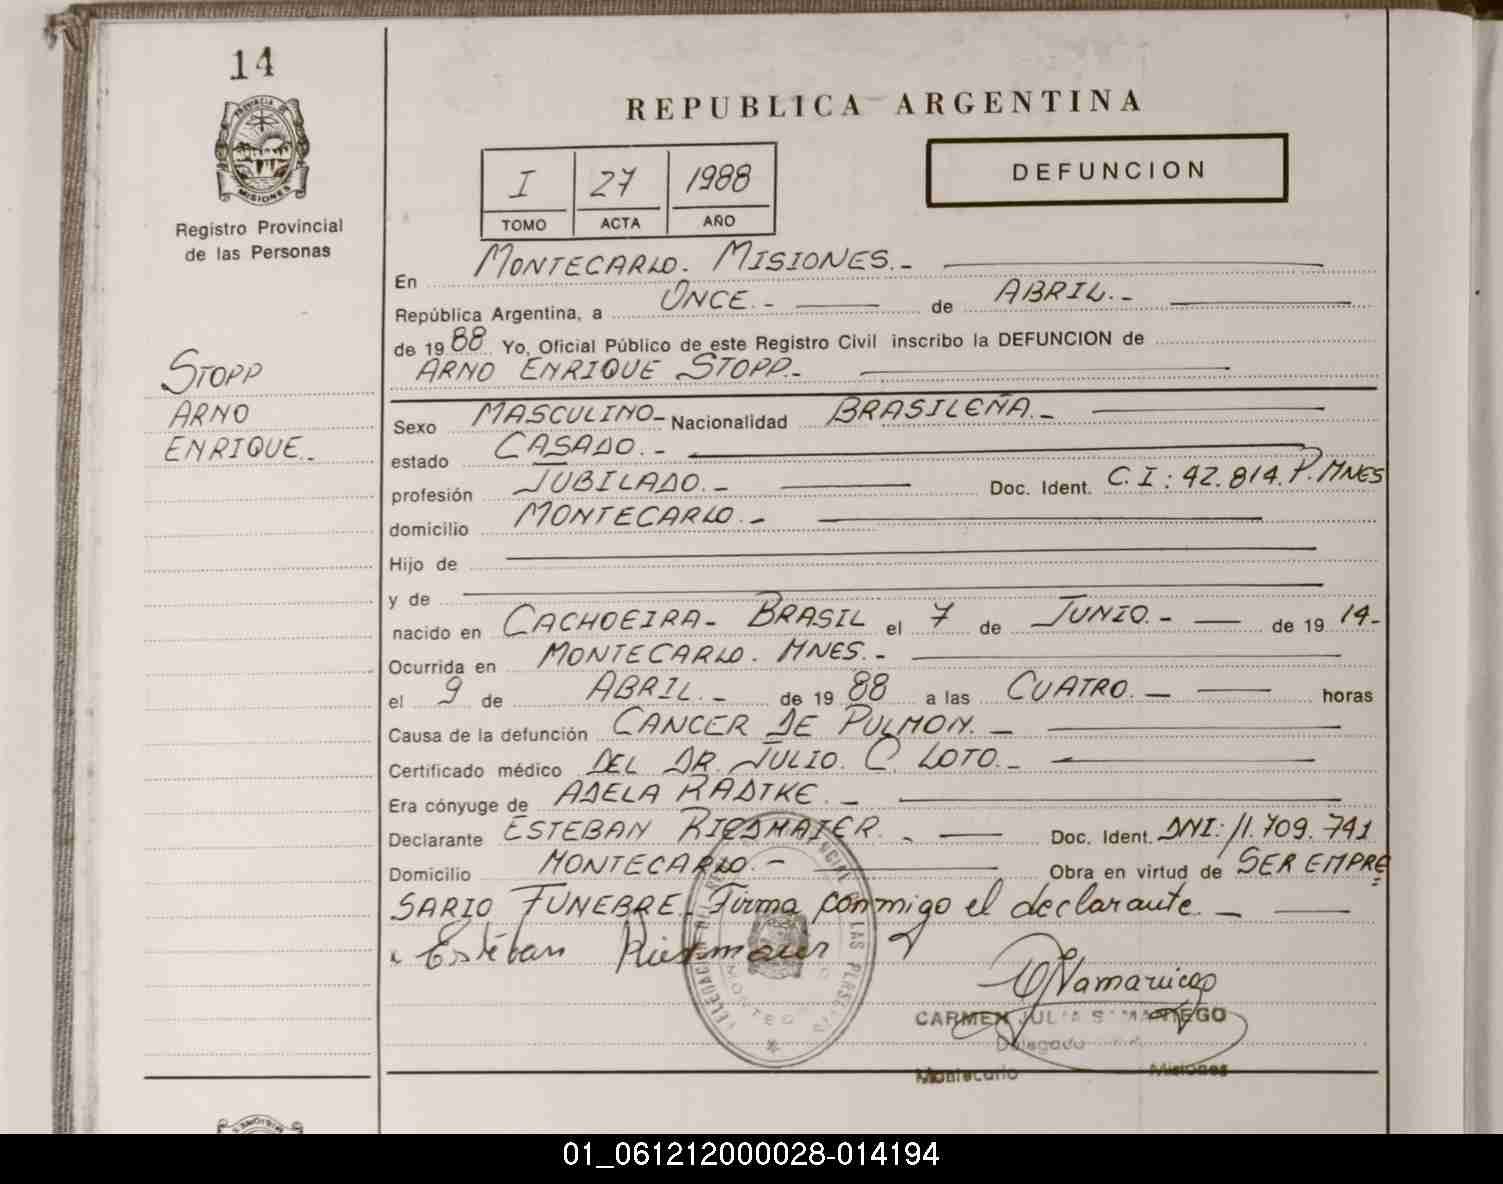 14
PROVINCIA DE
MISIONES
Registro Provincial
de las Personas
STOPP
ARNO
ENRIQUE.-
REPUBLICA ARGENTINA
I 27 1988
TOMO ACTA AÑO
DEFUNCION
En MONTECARLO. MISIONES.-
República Argentina, a ONCE.- de ABRIL.-
de 1988 Yo, Oficial Público de este Registro Civil inscribo la DEFUNCION de
ARNO ENRIQUE STOPP.-
Sexo MASCULINO- Nacionalidad BRASILEÑA.-
estado CASADO.-
profesión JUBILADO.- Doc. Ident. C.I: 42.814. P. MNES
domicilio MONTECARLO.-
Hijo de
y de
nacido en CACHOEIRA- BRASIL el 7 de JUNIO.- de 1914-
Ocurrida en MONTECARLO. MNES.-
el 9 de ABRIL.- de 1988 a las CUATRO.- horas
Causa de la defunción CANCER DE PULMON.-
Certificado médico DEL DR. JULIO. C. LOTO.-
Era cónyuge de ADELA RADTKE.-
Declarante ESTEBAN RIEDMAIER.- Doc. Ident. DNI: 11.709.741
Domicilio MONTECARLO.- Obra en virtud de SER EMPRE
SARIO FUNEBRE. Firma conmigo el declarante.-
Estéban Riedmaier
CARMEN JULIA SAMANIEGO
Delegado
Montecarlo Misiones
01_061212000028-014194